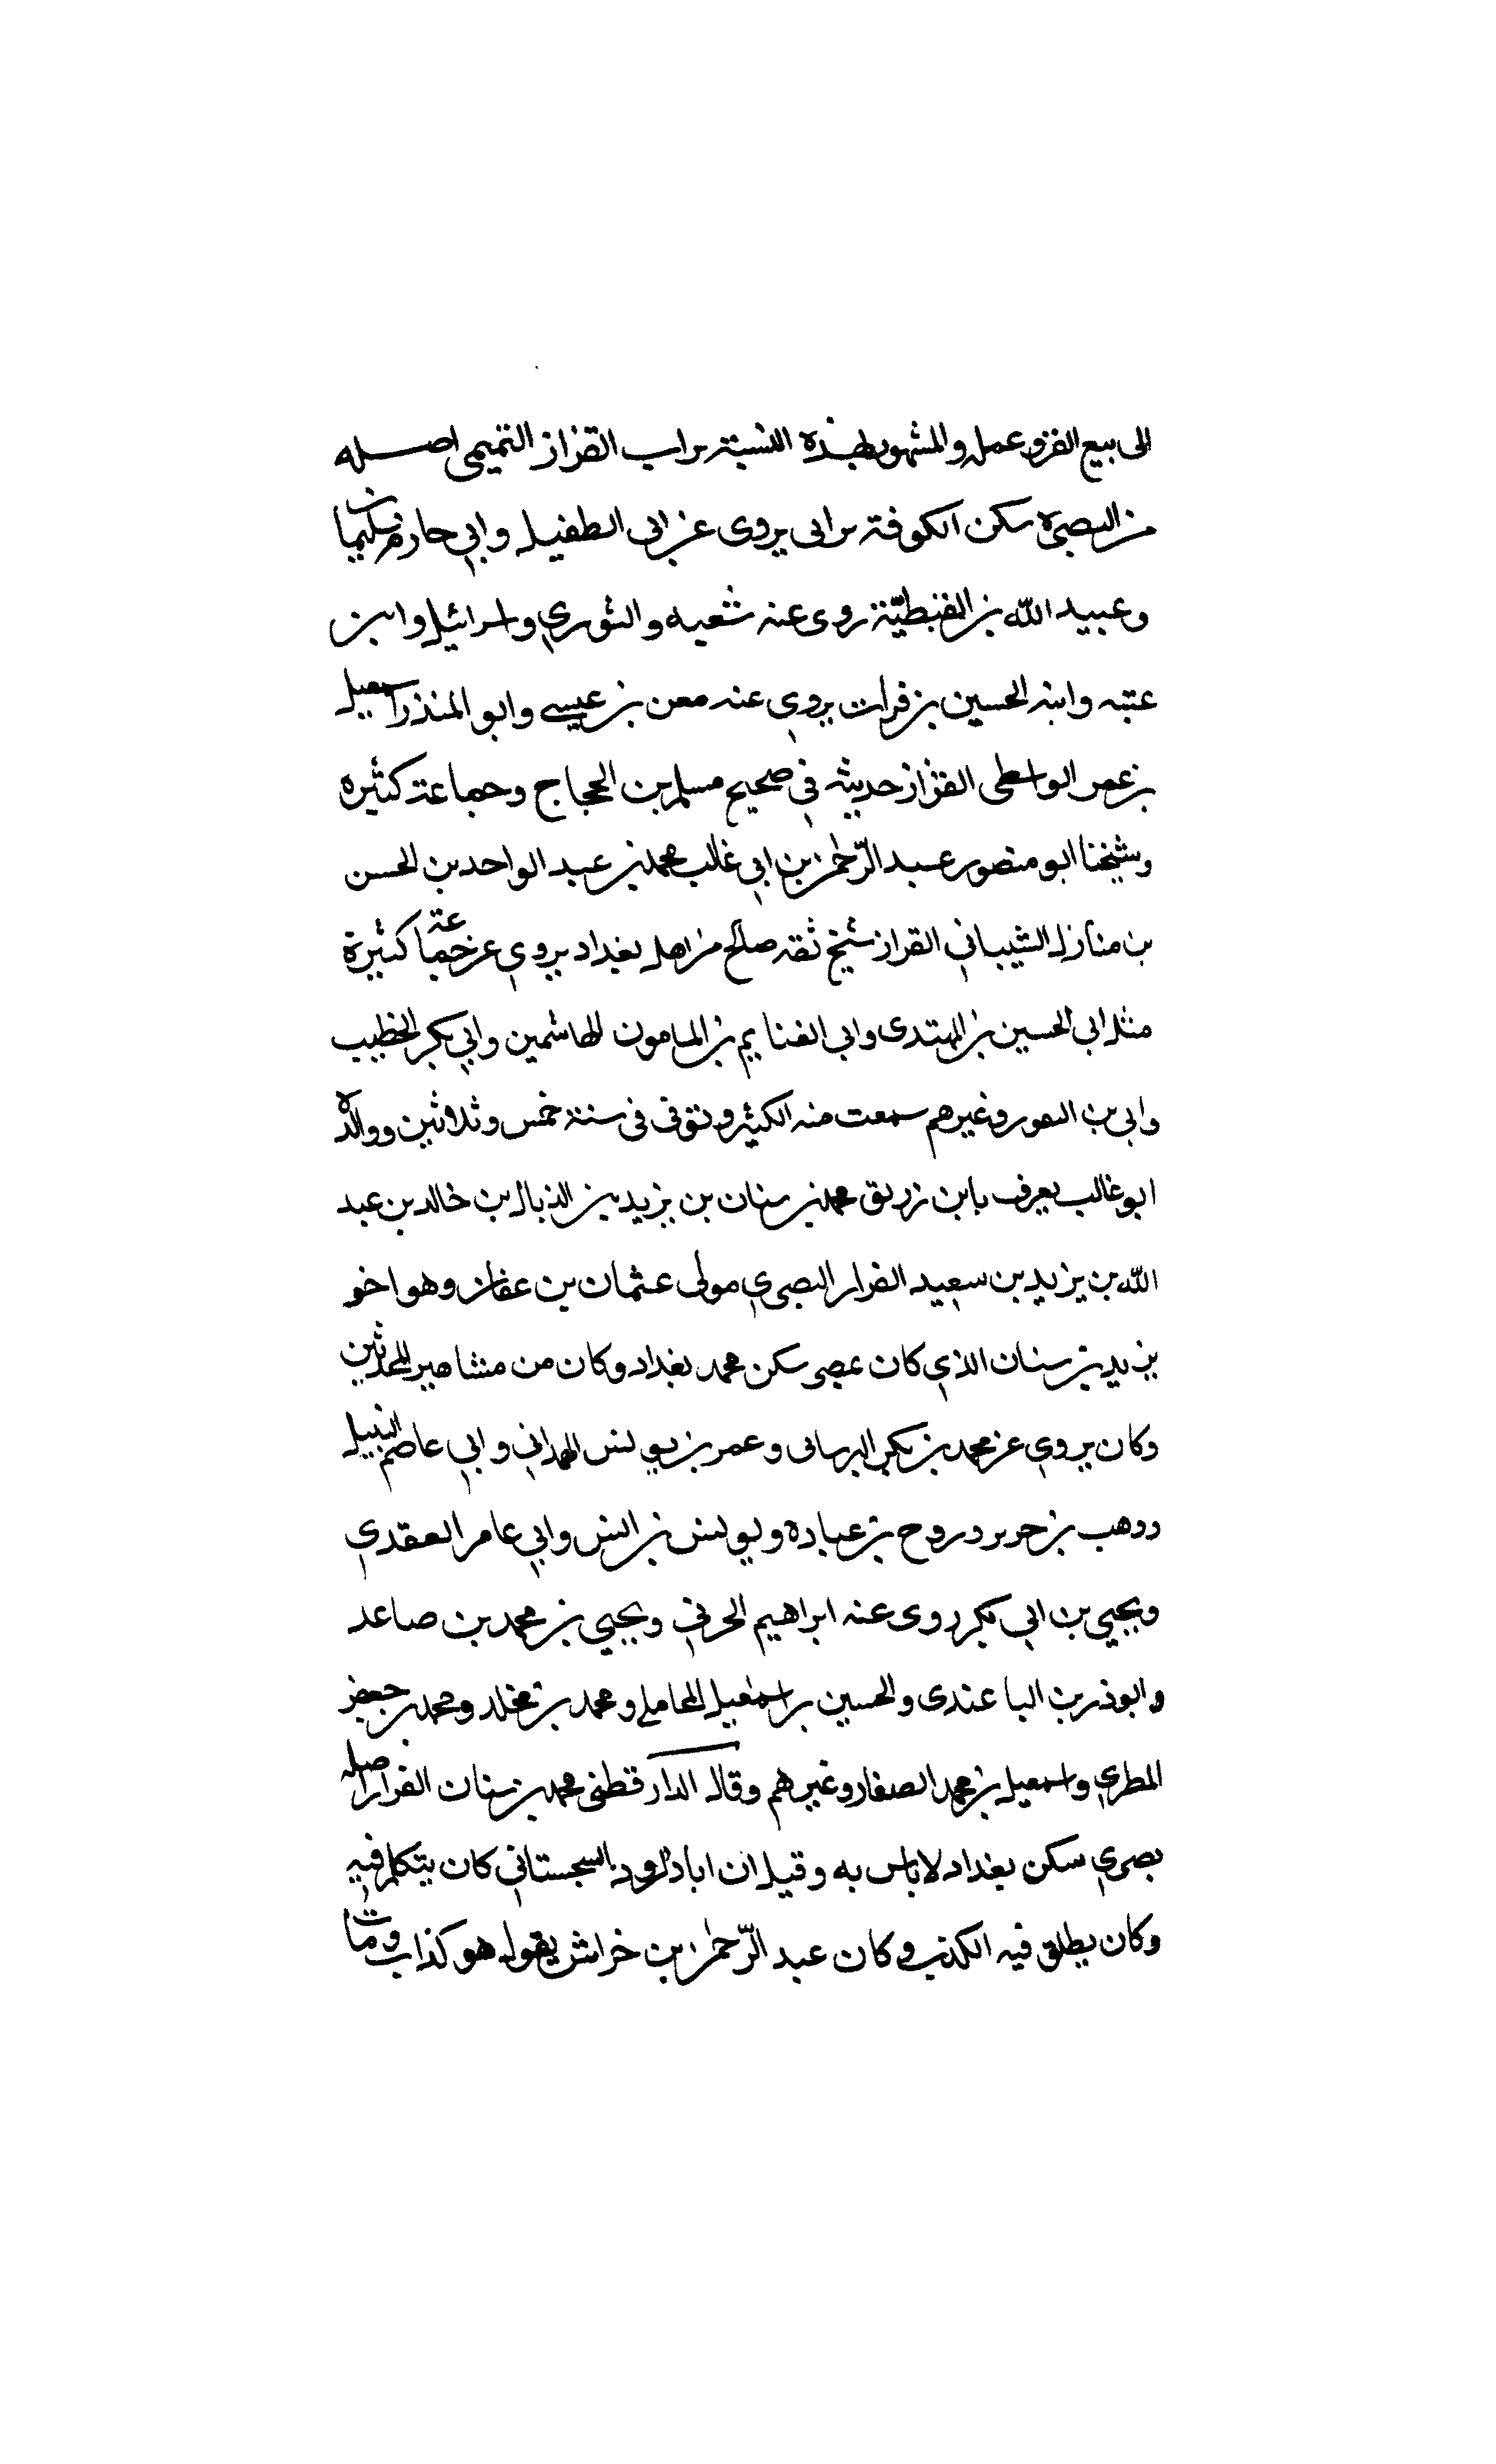 الى بيع القز وعمله والمشهور بهذه النسبة براب القزاز التميمى اصله
من البصرة سكن الكوفة برابى يروى عن ابى الطفيل وابي حازم سليمان
وعبيد الله بن القبطيّة روى عنه شعبه والثوري واسرائيل وابن
عتبه وابنه الحسين بن فرات يروي عنه معن بن عيسى وابو المنذر اسمعيل
بن عمر الواسطى القزاز حديثه في صحيح مسلم بن الحجاج وجماعة كثيره
وشيخنا ابو منصور عبد الرّحمن بن ابي غالب محمد بن عبد الواحد بن الحسن
بن منازل الشيباني القزاز شيخ ثقه صالح من اهل بغداد يروي عن جماعة كثيرة
مثل ابى الحسين بن المهتدى وابى الغنايم بن المامون الهاشمين وابي بكر الخطيب
وابى بن النعور وغيرهم سمعت منه الكثير وتوفى فى سنة خمس وثلاثين ووالده
ابو غالب يعرف بابن زريق محمد بن سنان بن يزيد بن الذيال بن خالد بن عبد
الله بن يزيد بن سعيد القزاز البصري مولى عثمان بن عفان وهو اخو
يزيد بن سنان الذي كان بمصر سكن محمد بغداد وكان من مشاهير المحدثين
وكان يروي عن محمد بن بكر البرسانى وعمر بن يونس الهمداني وابي عاصم النبيل
ووهب بن جرير وروح بن عباده ويونس بن انس وابي عامر العقدي
ويحيي بن ابي بكر روى عنه ابراهيم الحربي ويحيي بن محمد بن صاعد
وابو ذر بن الباعندى والحسين بن اسمعيل المحاملي ومحمد بن مخلد ومحمد بن جعفر
المطري واسمعيل بن محمد الصفار وغيرهم وقال الدارقطنى محمد بن سنان القزاز اصله
بصري سكن بغداد لاباس به وقيل ان اباداود السجستاني كان يتكلم فيه
وكان يطلق فيه الكذب وكان عبد الرّحمن بن خراش يقول هو كذاب ومات